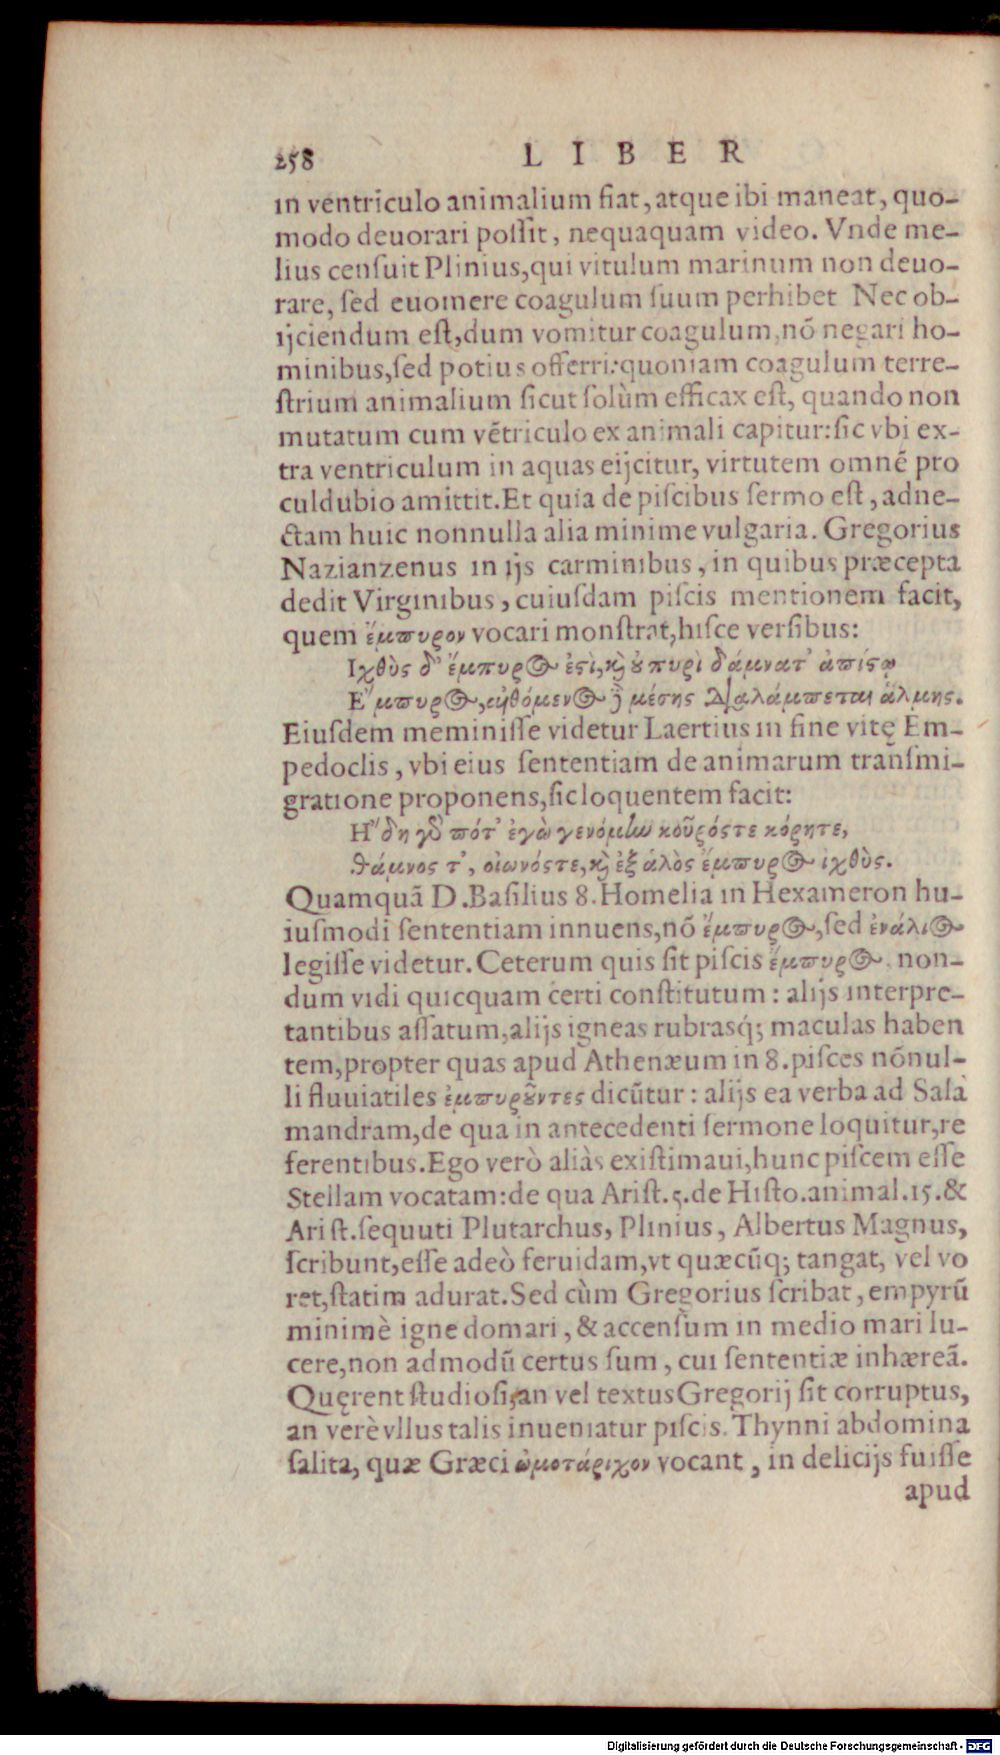 258 LIBER
in ventriculo animalium fiat, atque ibi maneat, quo-
modo deuorari poſſit, nequaquam video. Vnde me-
lius cenſuit Plinius, qui vitulum marinum non deuo-
rare, ſed euomere coagulum ſuum perhibet Nec ob-
ijciendum eſt, dum vomitur coagulum, nõ negari ho-
minibus, ſed potius offerri: quoniam coagulum terre-
ſtrium animalium ſicut ſolùm efficax eſt, quando non
mutatum cum vẽtriculo ex animali capitur: ſic vbi ex-
tra ventriculum in aquas eijcitur, virtutem omnẽ pro
culdubio amittit. Et quia de piſcibus ſermo eſt, adne-
ctam huic nonnulla alia minime vulgaria. Gregorius
Nazianzenus in ijs carminibus, in quibus præcepta
dedit Virginibus, cuiuſdam piſcis mentionem facit,
quem ἔμπυρον vocari monſtrat, hiſce verſibus:
Ιχθὺς δ' ἔμπυρος ἐστὶ, καὶ οὐ πυρὶ δάμνατ' ἀπίστῳ
Ε῎μπυρος, αἰθόμενος ἢ μέσης διαλάμπεται ἅλμης.
Eiuſdem meminiſſe videtur Laertius in fine vitę Em-
pedoclis, vbi eius ſententiam de animarum tranſmi-
gratione proponens, ſic loquentem facit:
Η῎δη γὰρ πότ' ἐγὼ γενόμην κοῦρόστε κόρητε,
θάμνος τ', οἰωνόστε, καὶ ἐξ ἁλὸς ἔμπυρος ἰχθὺς.
Quamquã D. Baſilius 8. Homelia in Hexameron hu-
iuſmodi ſententiam innuens, nõ ἔμπυρος, ſed ἐνάλιος
legiſſe videtur. Ceterum quis ſit piſcis ἔμπυρος, non-
dum vidi quicquam certi conſtitutum: alijs interpre-
tantibus aſſatum, alijs igneas rubrasq́; maculas haben
tem, propter quas apud Athenæum in 8. piſces nõnul-
li fluuiatiles ἐμπυροῦντες dicũtur: alijs ea verba ad Sala
mandram, de qua in antecedenti ſermone loquitur, re
ferentibus. Ego verò aliàs exiſtimaui, hunc piſcem eſſe
Stellam vocatam: de qua Ariſt. 5. de Hiſto. animal. 15. &
Ariſt. ſequuti Plutarchus, Plinius, Albertus Magnus,
ſcribunt, eſſe adeò feruidam, vt quæcũq; tangat, vel vo
ret, ſtatim adurat. Sed cùm Gregorius ſcribat, empyrũ
minimè igne domari, & accenſum in medio mari lu-
cere, non admodũ certus ſum, cui ſententiæ inhæreã.
Quęrent ſtudioſi, an vel textus Gregorij ſit corruptus,
an verè vllus talis inueniatur piſcis. Thynni abdomina
ſalita, quæ Græci ὠμοτάριχον vocant, in delicijs fuiſſe
apud
Digitalisierung gefördert durch die Deutsche Forschungsgemeinschaft - DFG